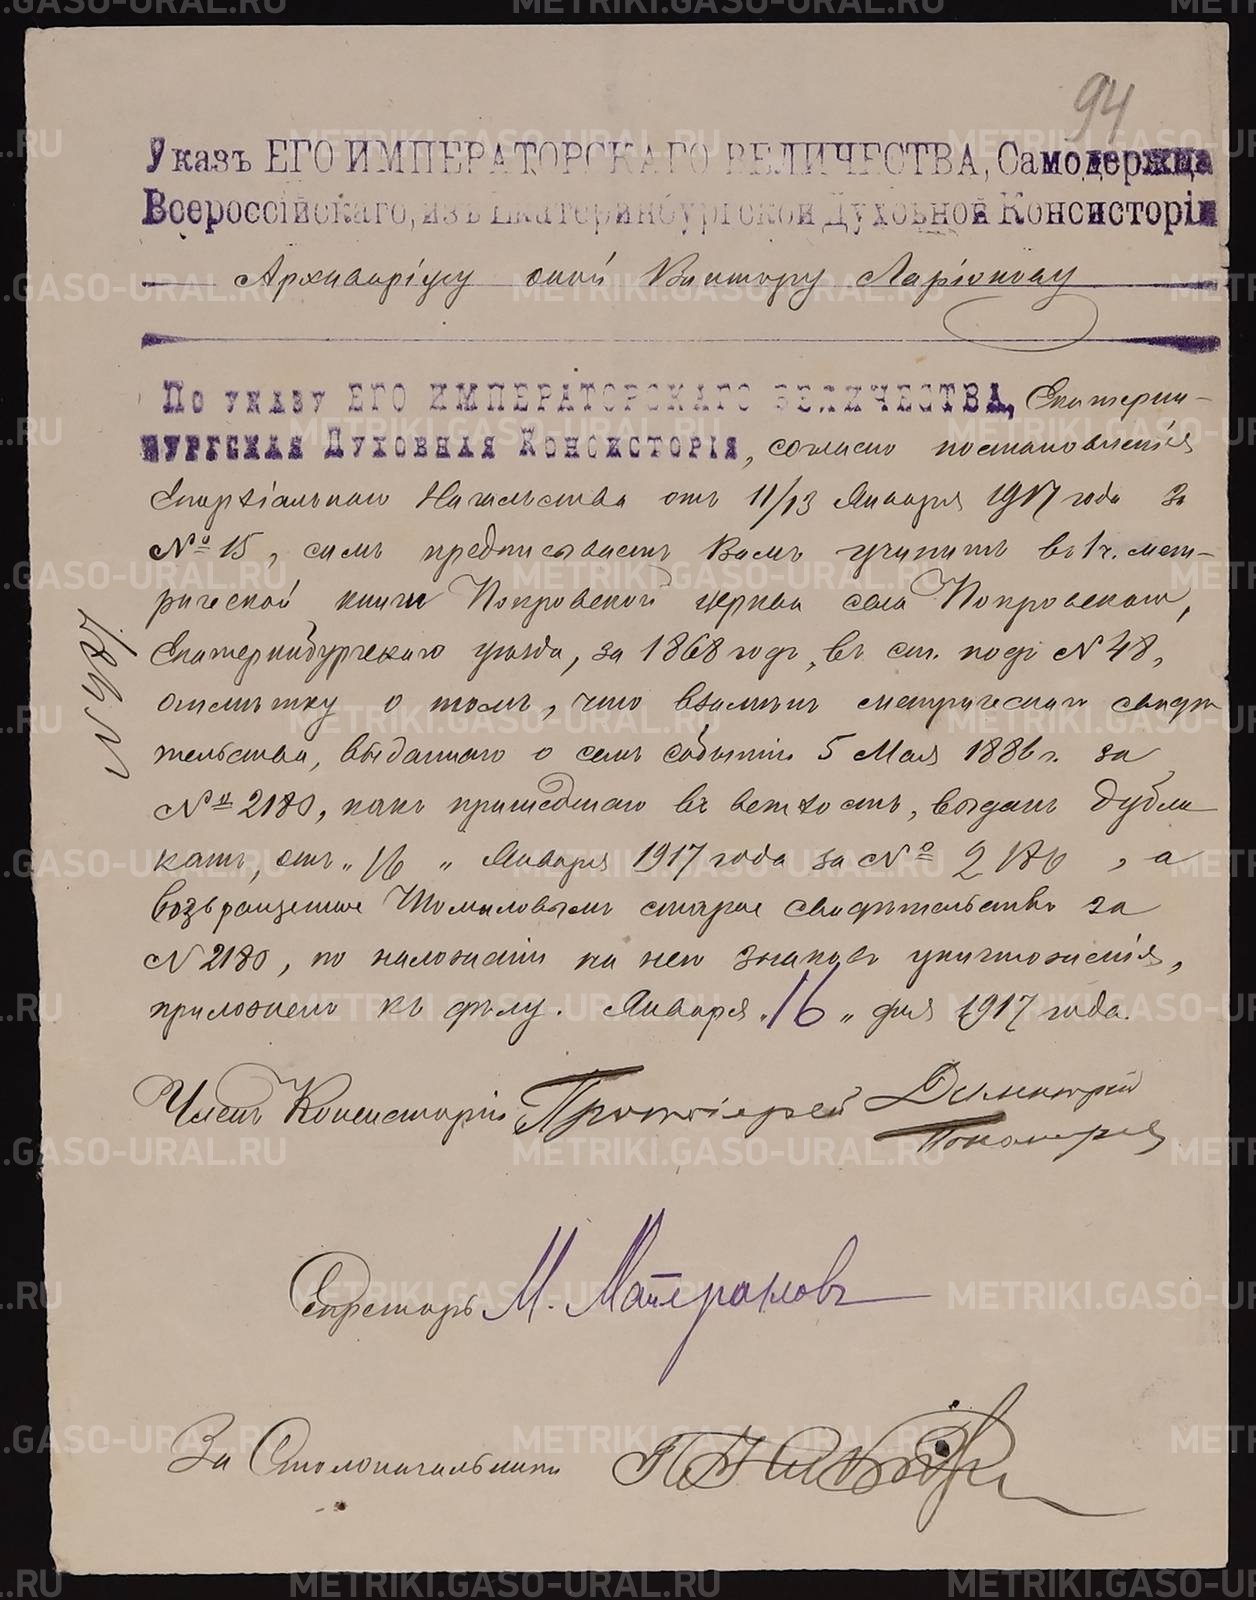 94
Указъ ЕГО ИМПЕРАТОРСКАГО ВЕЛИЧЕСТВА, Самодержца
Всероссійскаго, изъ Екатеринбургской Духовной Консисторіи
Архиваріусу оной Виктору Ларіонову
По указу ЕГО ИМПЕРАТОРСКАГО ВЕЛИЧЕСТВА, Екатерин-
бургская Духовная Консисторія, согласно постановленія
Епархіальнаго Начальства отъ 11/13 Января 1917 года за
№ 15, симъ предписываетъ Вамъ учинить въ 1 ч. мет-
рической книги Покровской церкви села Покровскаго,
Екатеринбургскаго уѣзда, за 1868 годъ, въ ст. подъ № 48,
отмѣтку о томъ, что взамѣнъ метрическаго свидѣ
тельства, выданнаго о семъ событіи 5 Мая 1886 г. за
№ 2180, какъ пришедшаго въ ветхость, выданъ дубли
катъ, отъ „16„ Января 1917 года за № , а
возвращенное старое свидѣтельство за
№ 2180, по наложеніи на него знаковъ уничтоженія,
приложено къ дѣлу. Января „16„ дня 1917 года.
Членъ Консисторіи Протоіерей Димитрій
Пономаревъ
Секретарь М. Матерановъ
За Столоначальника
METRIKI.GASO-URAL.RU